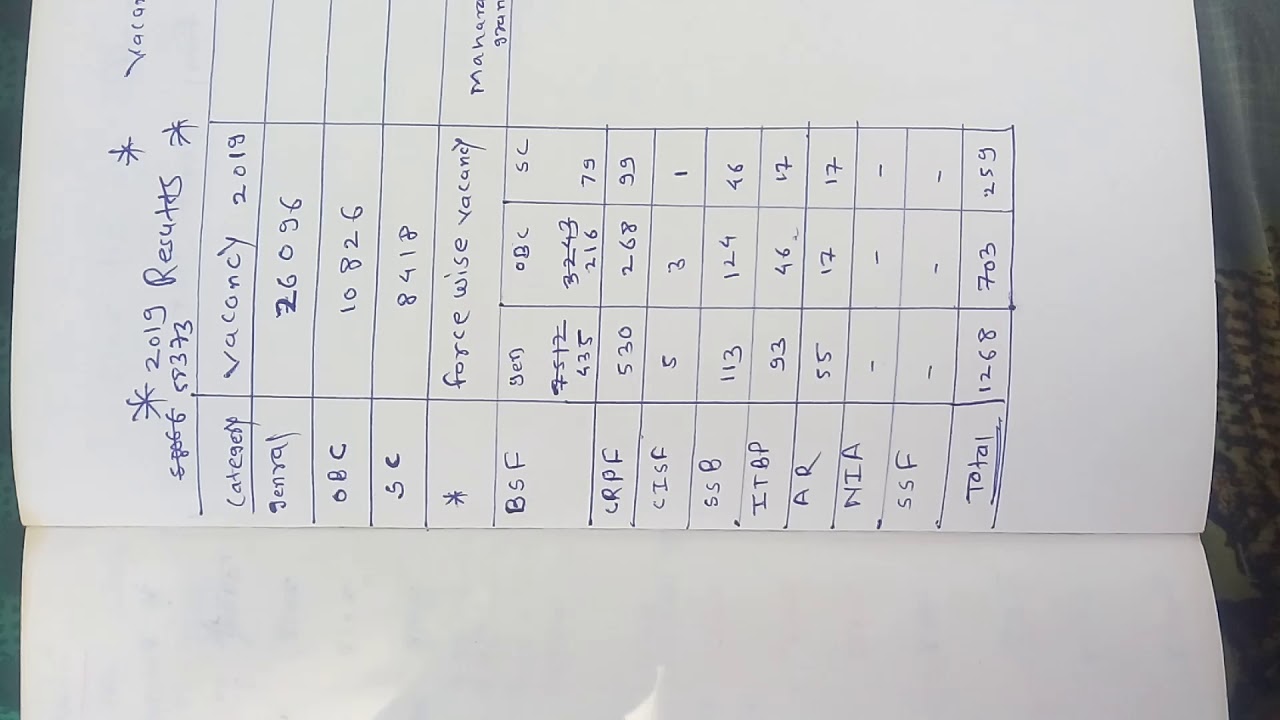 * 2019 Results * * Vaca
58373
Category Vacancy 2019
genral 26096
OBC 10826
SC 8418
* force wise vacancy Mahara
gran
BSF gen OBC SC
7512 3243
435 216 79
CRPF 530 268 99
CISF 5 3 1
SSB 113 124 46
ITBP 93 46 17
AR 55 17 17
NIA - - -
SSF - - -
Total 1268 703 259